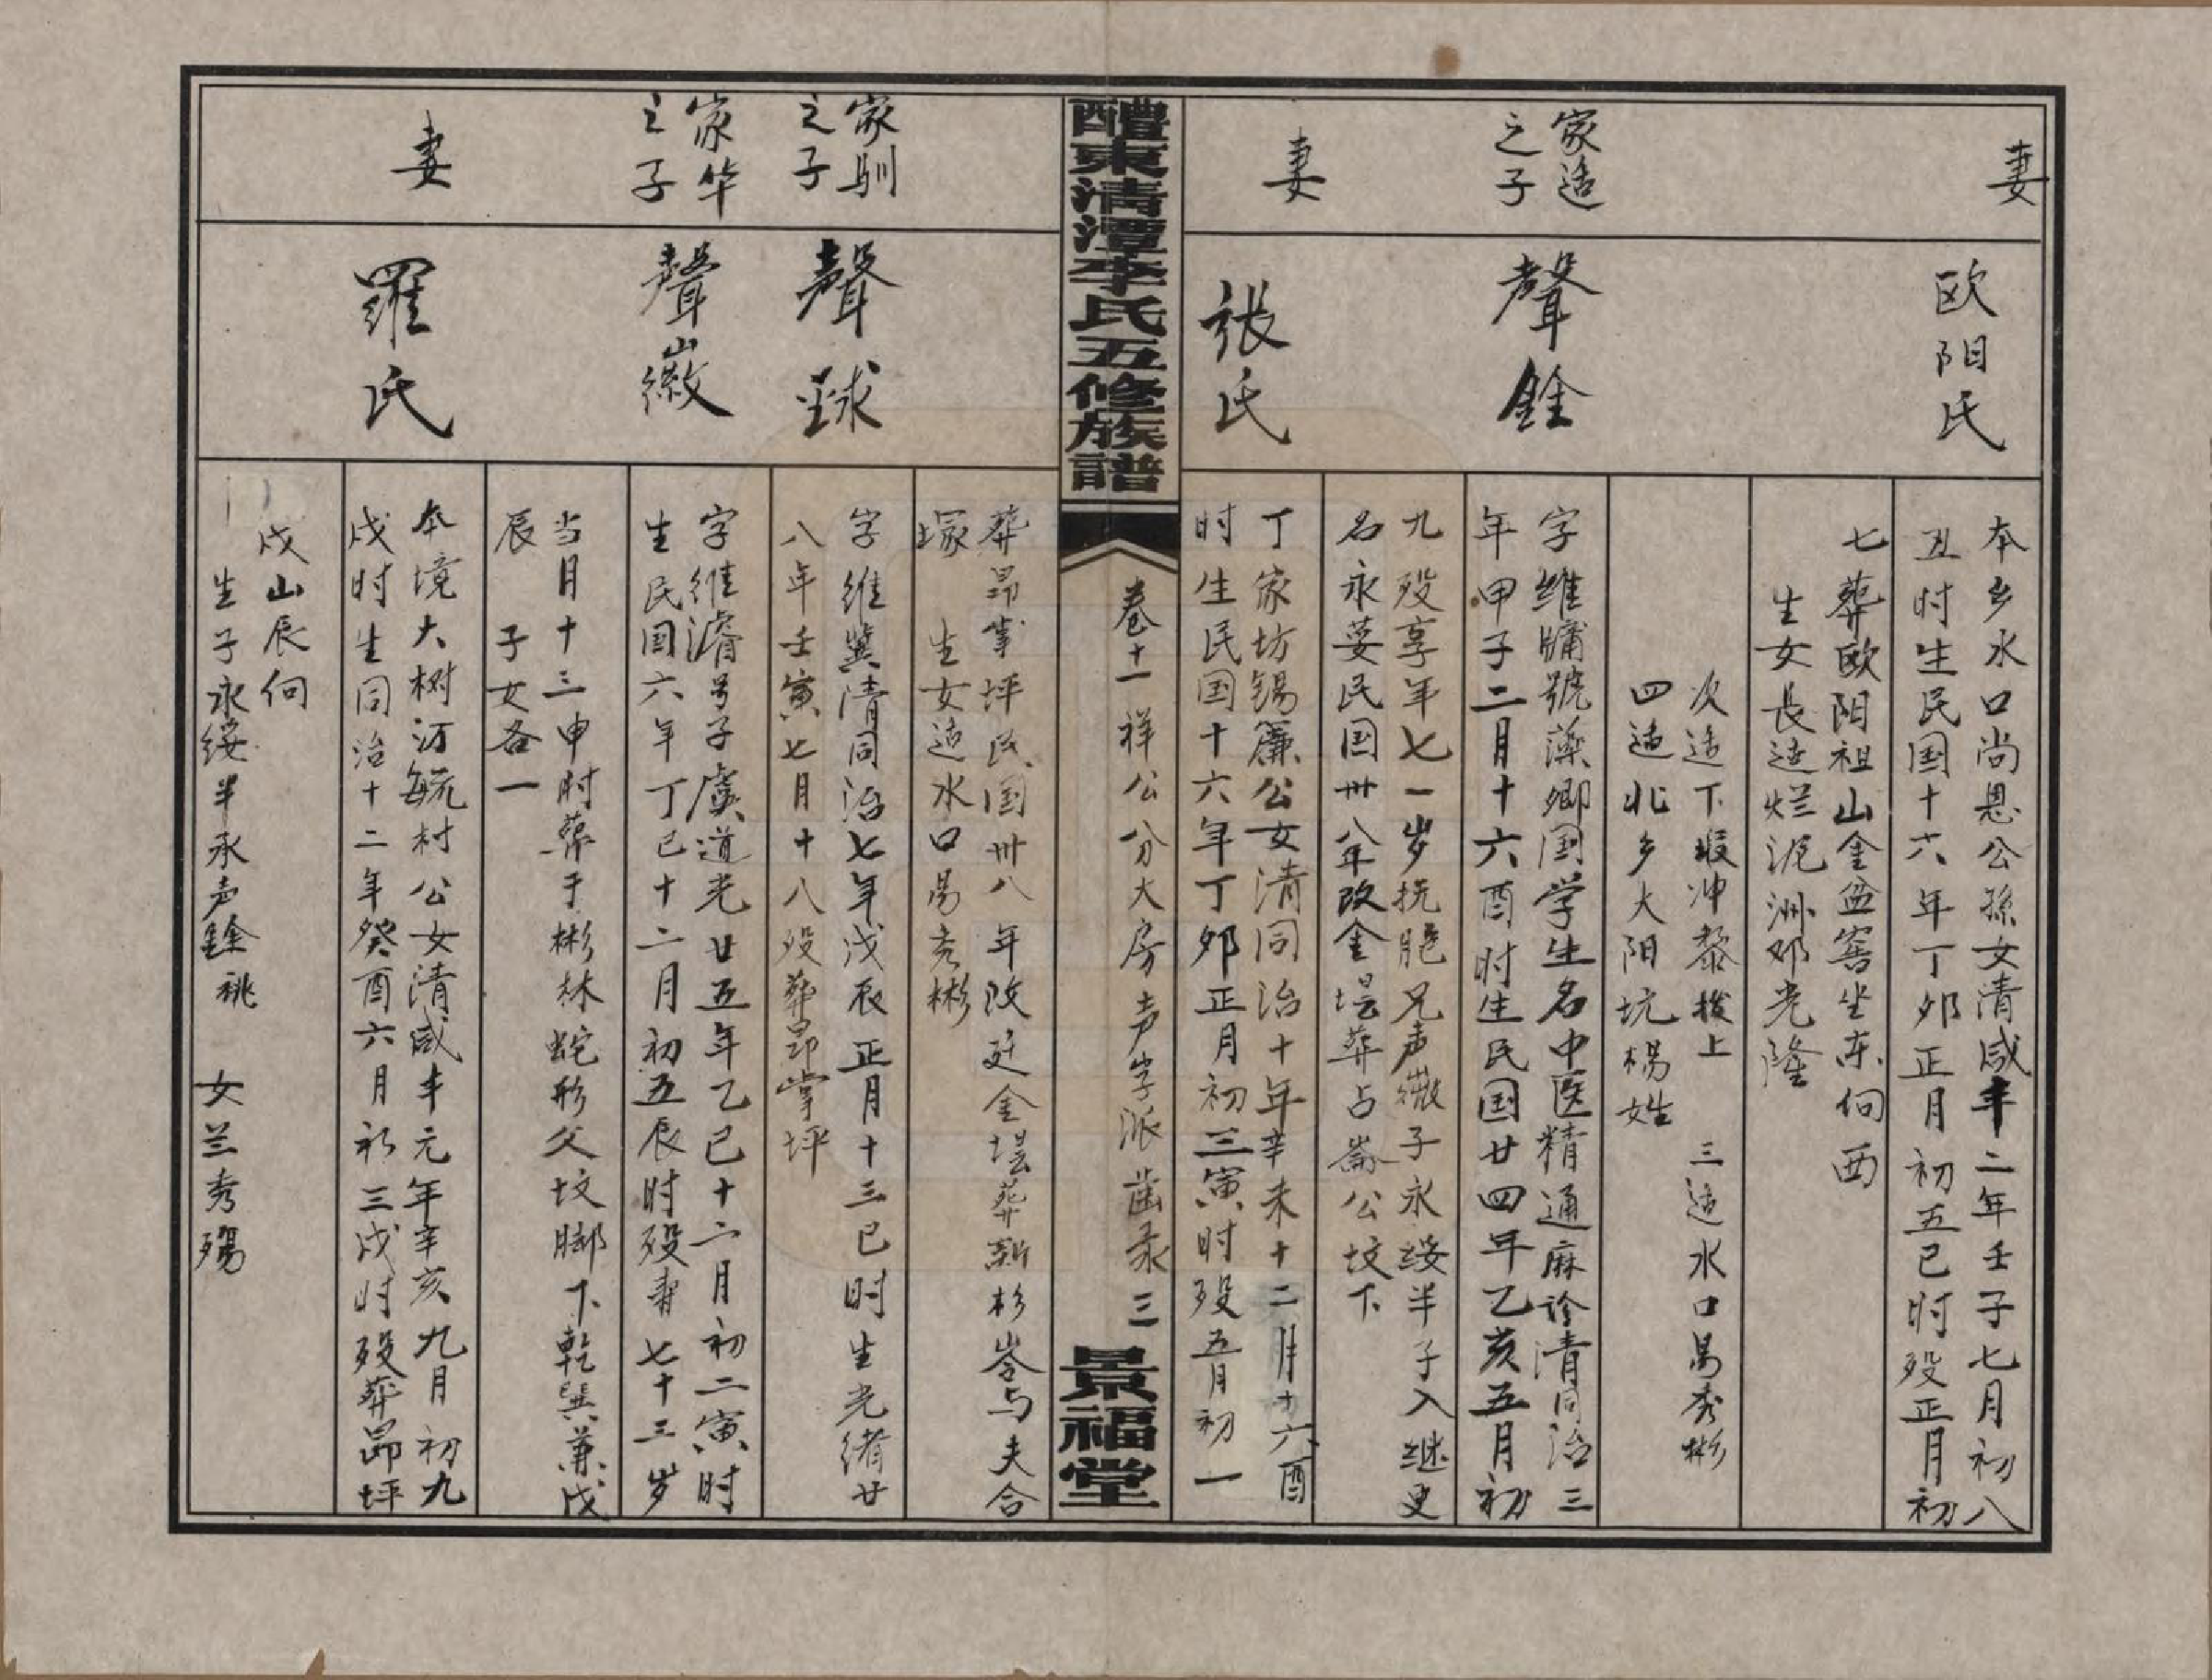 妻
欧阳氏
本乡水口尚恩公孫女清咸丰二年壬子七月初八
丑时生民国十六年丁夘正月初五巳时殁正月初
七葬欧阳祖山金盆窖坐东向西
生女長适烂泥洲邓光隆
次适下塅冲黎 上 三适水口易秀彬
四适北乡大阳坑楊姓
家适
之子
聲銓
字維牗號藻卿国学生名中医精通麻诊清同治三
年甲子二月十六酉时生民国廿四年乙亥五月初
九殁享年七一岁抚胞兄声徽子永绥半子入继更
名永荽民国卅八年改金坛葬占崙公坟下
妻
張氏
丁家坊锡廉公女清同治十年辛未十二月十六酉
时生民国十六年丁夘正月初三寅时殁五月初一
醴東清潭李氏五修族譜
卷十一祥公分大房声字派齿录 三
景福堂
葬昂掌坪民国卅八年改迁金坛葬新杉岺与夫合
塚 生女适水口易秀彬
家馴
之子
聲球
字維冀清同治七年戊辰正月十三巳时生光绪廿
八年壬寅七月十八殁葬昂掌坪
家华
之子
聲徽
字維濬号子虞道光廿五年乙巳十二月初二寅时
生民国六年丁巳十二月初五辰时殁壽七十三岁
当月十三申时葬于彬林蛇形父坟脚下乾巽兼戌
辰 子女各一
妻
羅氏
本境大树汀毓村公女清咸丰元年辛亥九月初九
戌时生同治十二年癸酉六月初三戌时殁葬昂坪
戌山辰向
生子永绥半承声銓祧 女兰秀殤